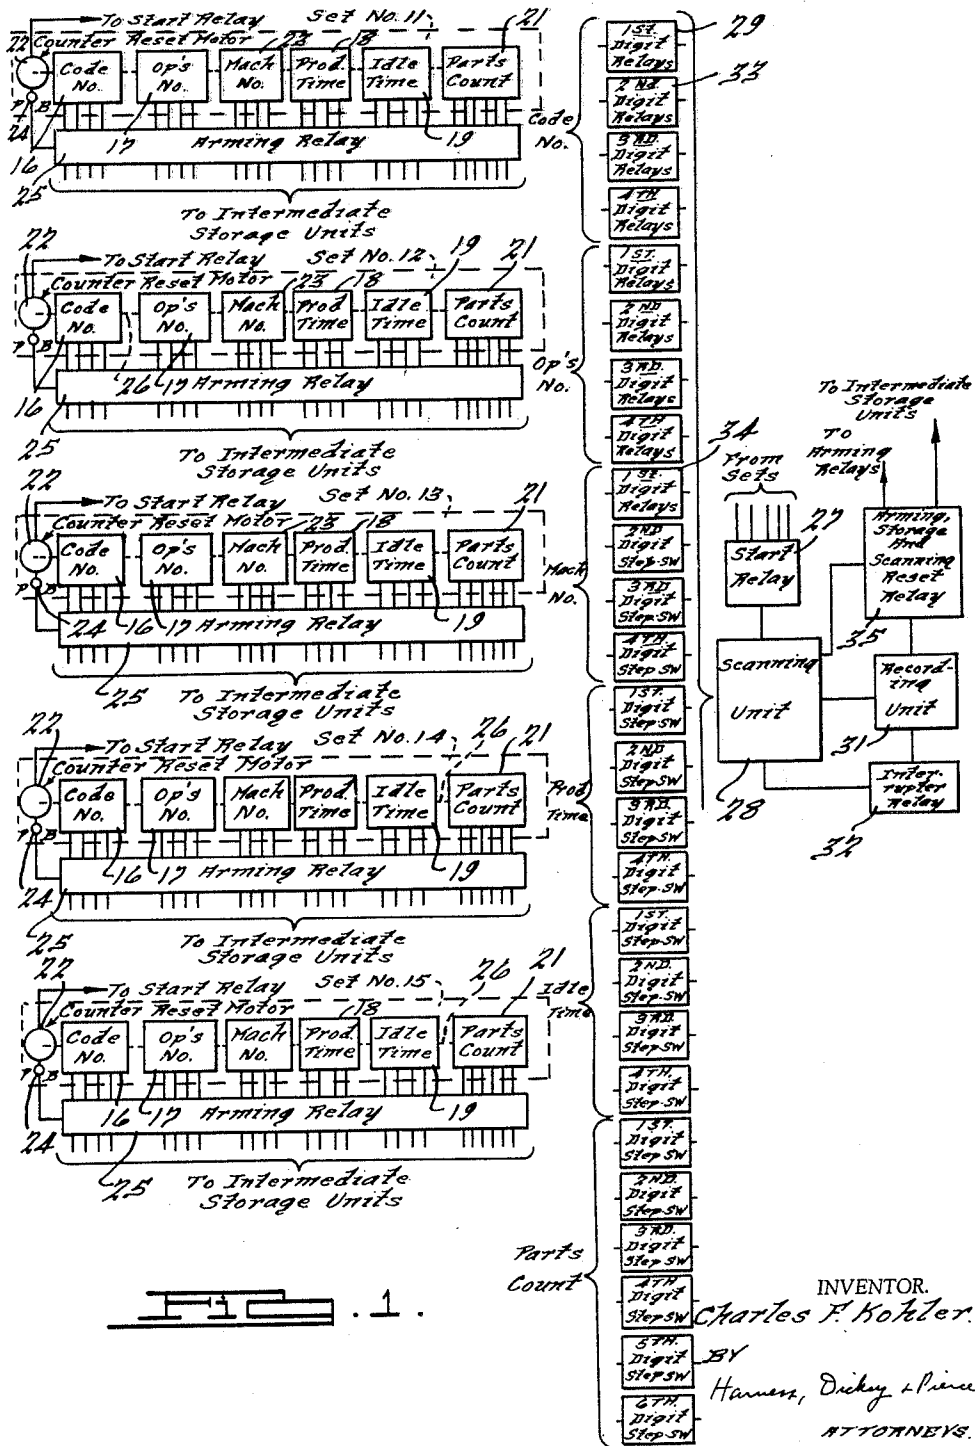 To Start Relay Set No. 11 21
22 Counter Reset Motor 23 18
Code No. Op's No. Mach No. Prod. Time Idle Time Parts Count
P B
24
16 17 Arming Relay 19
25
To Intermediate
Storage Units
22 To Start Relay Set No. 12 19 21
Counter Reset Motor 23 18
Code No. Op's No. Mach No. Prod. Time Idle Time Parts Count
P B
16 26 17 Arming Relay
25
To Intermediate
Storage Units
22 To Start Relay Set No. 13 21
Counter Reset Motor 23 18
Code No. Op's No. Mach No. Prod. Time Idle Time Parts Count
P B
24 16 17 Arming Relay 19
25
To Intermediate
Storage Units
22 To Start Relay Set No. 14 26 21
Counter Reset Motor
Code No. Op's No. Mach No. Prod. Time Idle Time Parts Count
P B
24 16 17 Arming Relay 19
25
To Intermediate
Storage Units
22 To Start Relay Set No. 15 26 21
Counter Reset Motor 18
Code No. Op's No. Mach No. Prod. Time Idle Time Parts Count
P B
24 16 17 Arming Relay 19
25
To Intermediate
Storage Units
Code
No.
1ST. Digit Relays 29
2ND. Digit Relays 33
3RD. Digit Relays
4TH Digit Relays
Op's
No.
1ST. Digit Relays
2ND Digit Relays
3RD. Digit Relays
4TH Digit Relays
Mach
No.
1ST. Digit Relays 34
2ND Digit Step-SW
3RD Digit Step-SW
4TH. Digit Step SW
Prod.
Time
1ST. Digit Step-SW
2ND Digit Step-SW
3RD. Digit Step-SW
4TH. Digit Step-SW
Idle
Time
1ST. Digit Step-SW
2ND. Digit Step-SW
3RD Digit Step-SW
4TH. Digit Step-SW
Parts
Count
1ST. Digit Step SW
2ND. Digit Step-SW
3RD. Digit Step SW
4TH Digit Step SW
5TH. Digit Step SW
6TH. Digit Step-SW
To Intermediate
Storage
Units
To
Arming
Relays
From
Sets
27
Start
Relay
Arming,
Storage
And
Scanning
Reset
Relay
35
Scanning
Unit
28
Record-
ing
Unit
31
Inter-
rupter
Relay
32
Fig. 1.
INVENTOR.
Charles F. Kohler.
BY
Harness, Dickey & Pierce
ATTORNEYS.